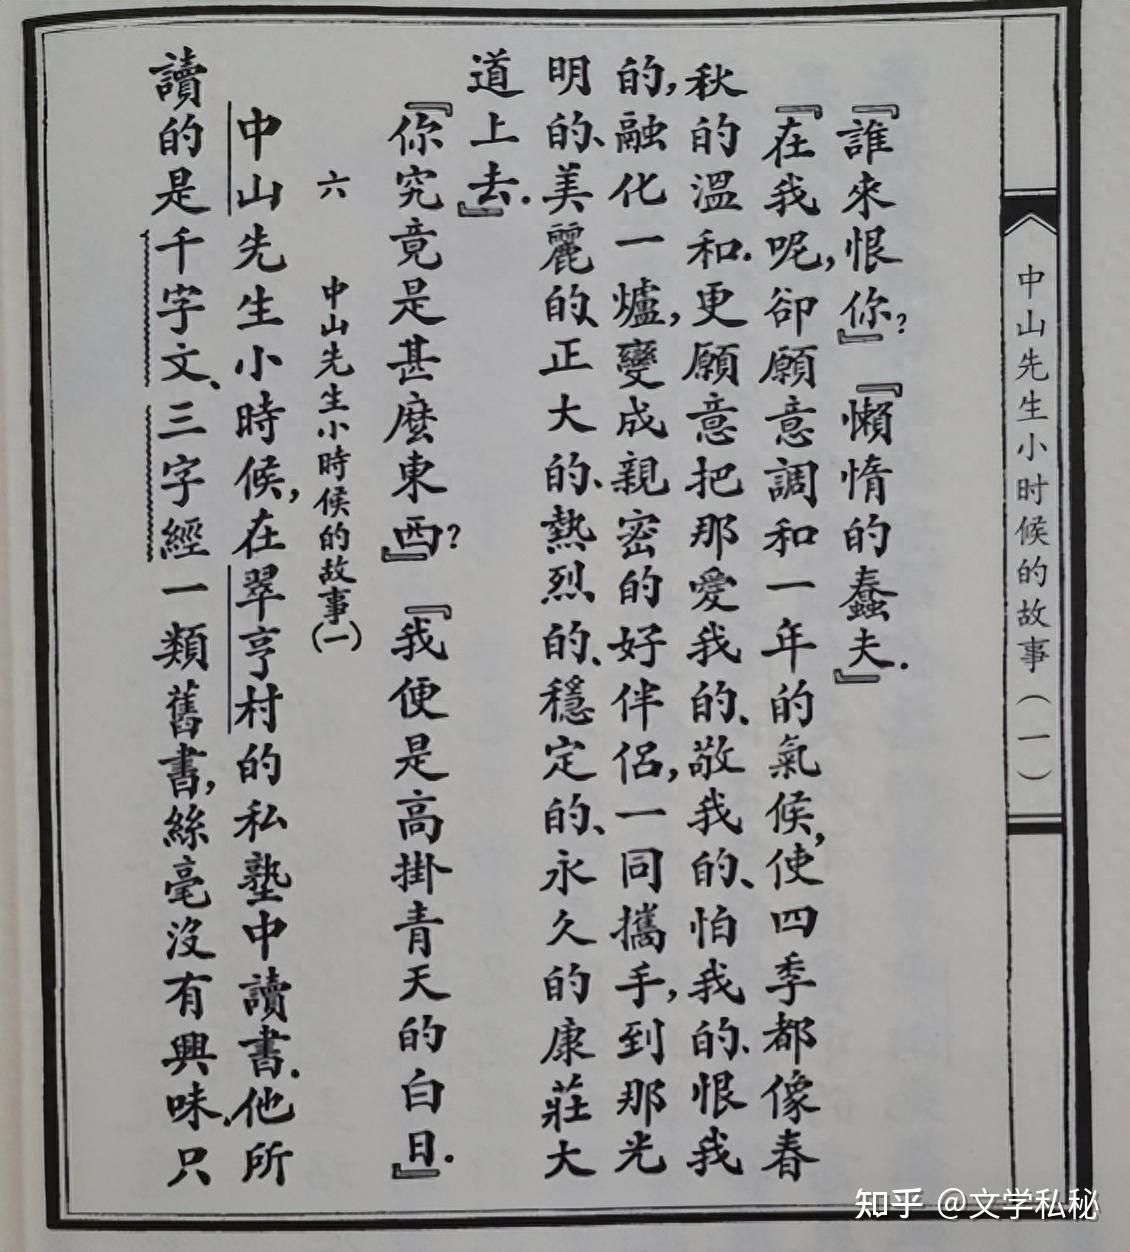 中山先生小时候的故事（一）
『誰來恨你』？『懶惰的蠢夫』.
『在我呢,卻願意調和一年的氣候,使四季都像春
秋的溫和.更願意把那愛我的、敬我的、怕我的、恨我
的,融化一爐,變成親密的好伴侶,一同攜手,到那光
明的、美麗的、正大的、熱烈的、穩定的、永久的康莊大
道上去』.
『你究竟是甚麼東西』？『我便是高掛青天的白日』.
六 中山先生小時候的故事(一)
中山先生小時候,在翠亨村的私塾中讀書.他所
讀的是千字文、三字經一類舊書,絲毫沒有興味.只
知乎 @文学私秘